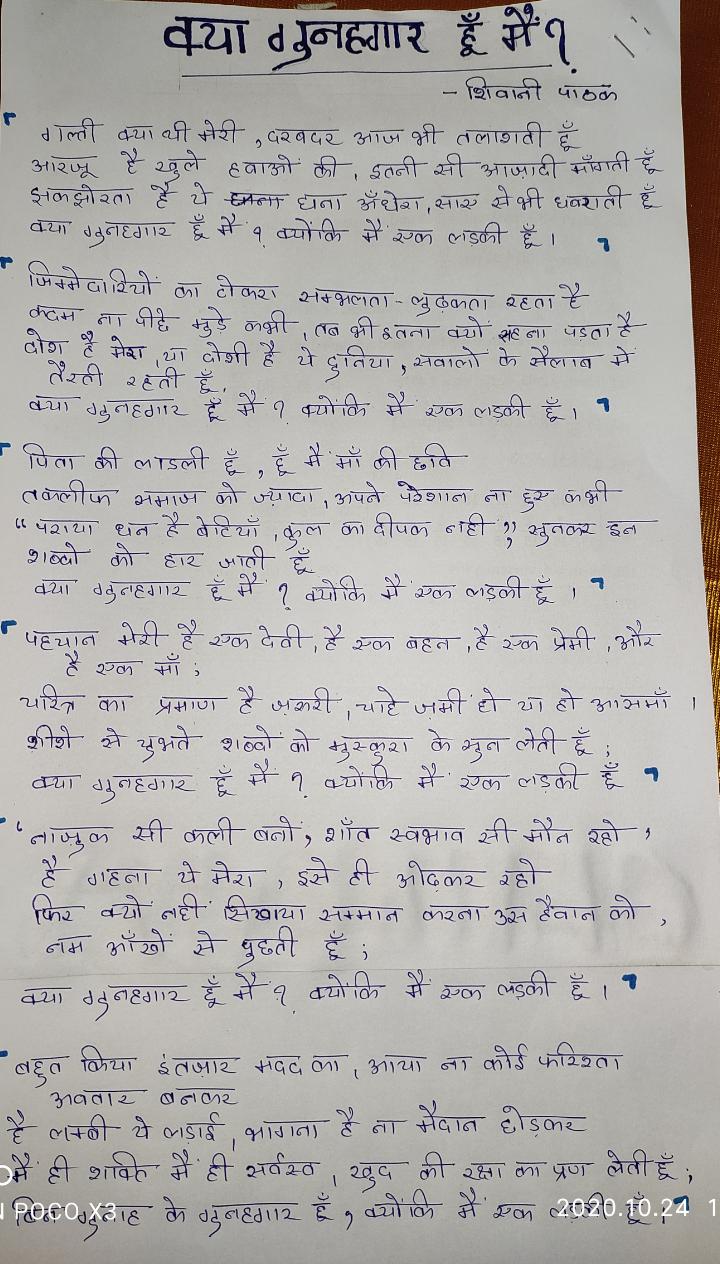 क्या गुनहगार हूँ मैं?
- शिवानी पाठक
गल्ती क्या थी मेरी, दरबदर आज भी तलाशती हूँ
आरज़ू है खुले हवाओं की, इतनी सी आज़ादी माँगती हूँ
झकझोरता है ये घना अँधेरा, साए से भी घबराती हूँ
क्या गुनहगार हूँ मैं? क्योंकि मैं एक लड़की हूँ।
जिम्मेदारियों का टोकरा सम्भलता-लुढ़कता रहता है
कदम ना पीछे मुड़े कभी, तब भी इतना क्यों सहना पड़ता है
दोश है मेरा, या दोशी है ये दुनिया, सवालों के सैलाब में
तैरती रहती हूँ,
क्या गुनहगार हूँ मैं? क्योंकि मैं एक लड़की हूँ।
पिता की लाडली हूँ, हूँ मैं माँ की छवि
तकलीफ समाज को ज्यादा, अपने परेशान ना हुए कभी
"पराया धन है बेटियाँ, कुल का दीपक नही" सुनकर इन
शब्दों को हार जाती हूँ
क्या गुनहगार हूँ मैं? क्योंकि मैं एक लड़की हूँ।
पहचान मेरी है एक देवी, है एक बहन, है एक प्रेमी, और
है एक माँ;
चरित्र का प्रमाण है ज़रूरी, चाहे ज़मी हो या हो आसमाँ।
शीशे से चुभते शब्दों को मुस्कुरा के सुन लेती हूँ;
क्या गुनहगार हूँ मैं? क्योंकि मैं एक लड़की हूँ
'नाज़ुक सी कली बनो, शाँत स्वभाव सी मौन रहो'
है गहना ये मेरा, इसे ही ओढ़कर रहो
फिर क्यों नही सिखाया सम्मान करना उस हैवान को,
नम आँखों से पुछती हूँ;
क्या गुनहगार हूँ मैं? क्योंकि मैं एक लड़की हूँ।
बहुत किया इंतज़ार मदद का, आया ना कोई फरिश्ता
अवतार बनकर
है लम्बी ये लड़ाई, भागना है ना मैदान छोड़कर
मैं ही शक्ति मैं ही सर्वस्व, खुद की रक्षा का प्रण लेती हूँ;
बिन गुनाह के गुनहगार हूँ, क्योंकि मैं एक लड़की हूँ।
POCO X3
2020.10.24 1